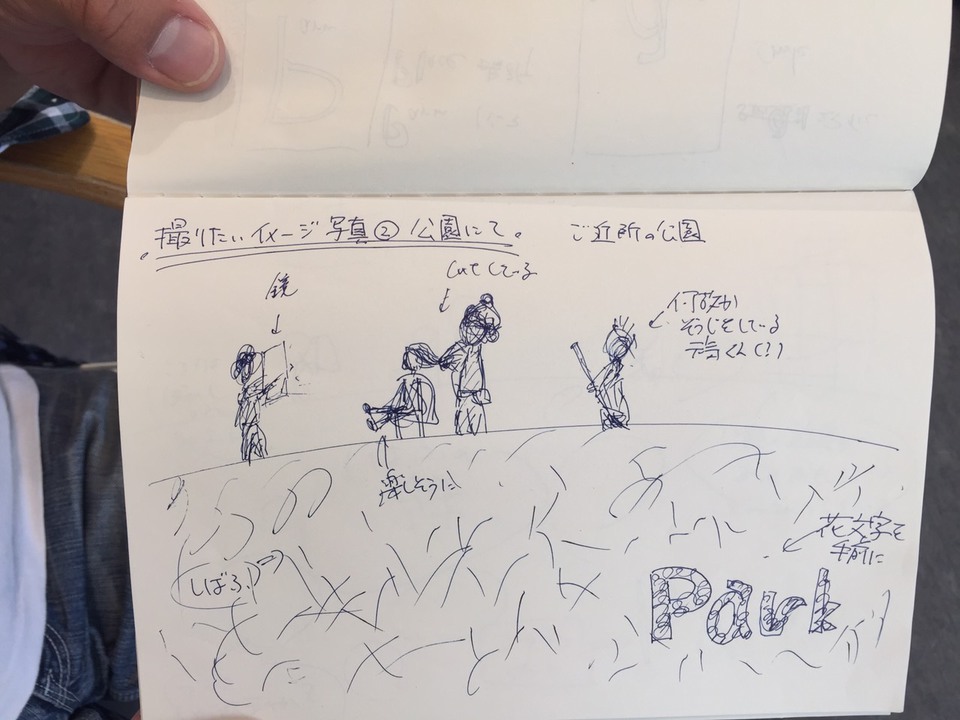 撮りたいイメージ写真② 公園にて。
ご近所の公園
鏡
している
何故か
そうじをしている
楽しそうに
しばふ
花文字を
手前に
Park